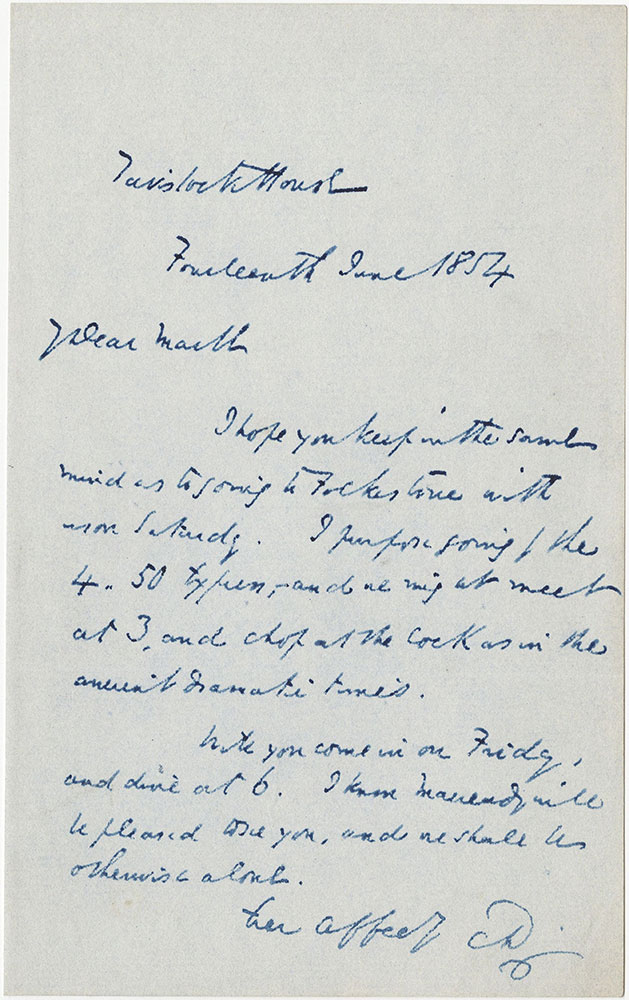 Tavistock House
Fourteenth June 1854
My Dear Mark
I hope you keep in the same
mind as to going to Folkestone with
us on Saturday. I purpose going by the
4.. 50 Express, and we might meet
at 3, and chop at the Cock as in the
ancient dramatic times.
Will you come in on Friday,
and dine at 6. I know Macready will
be pleased to see you, and we shall be
otherwise alone.
Ever affecy CD